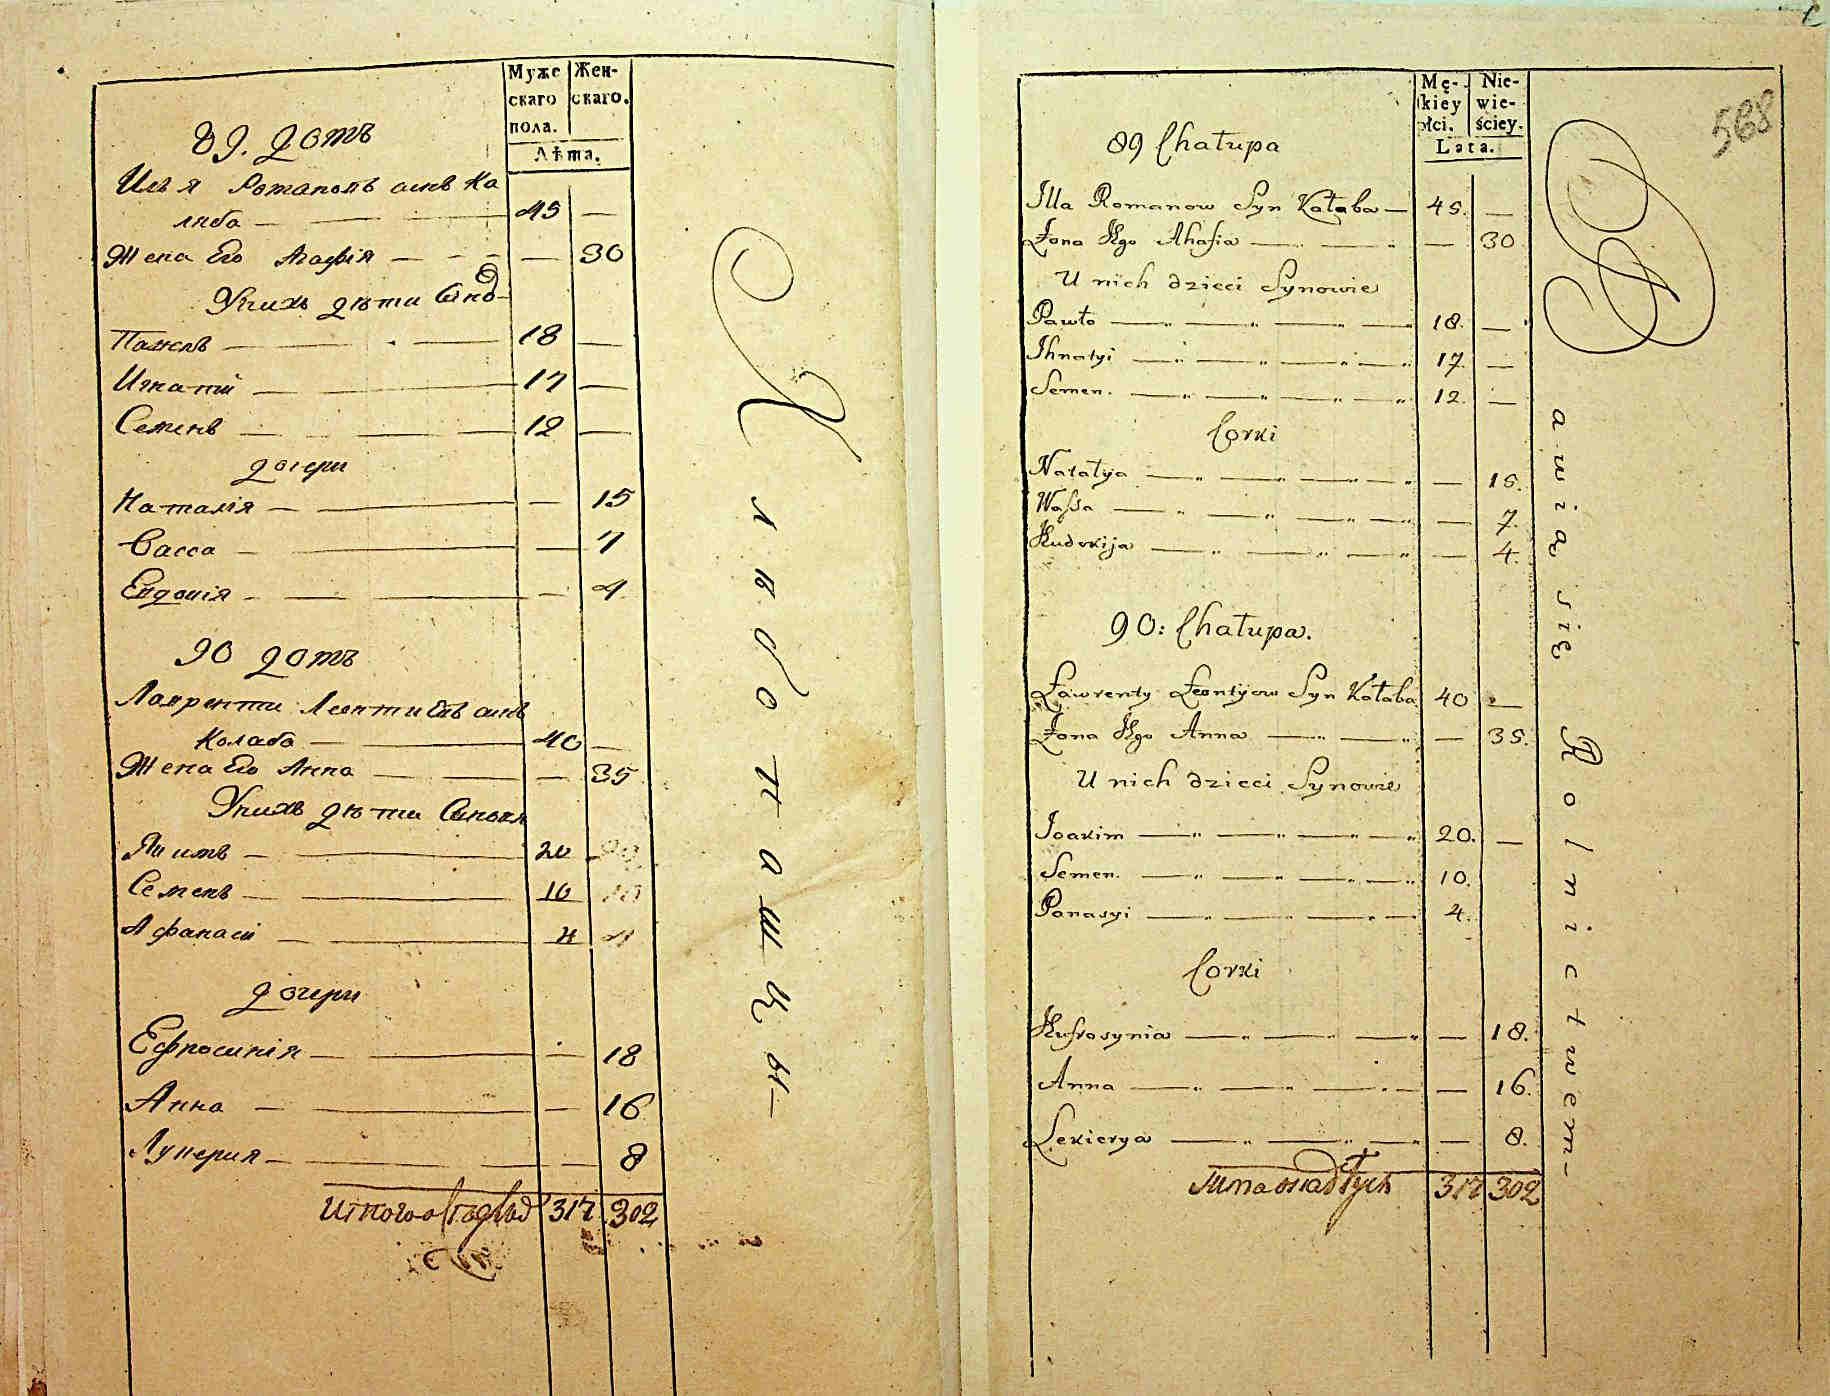 Муже
скаго
пола.
Жен-
скаго.
Лѣта.
89. домъ
Илья Романовъ сынъ Ка
лаба — 45 —
Жена Его Агафія — — 30
Унихъ дѣти Сыно-
Павелъ — 18 —
Игнатій — 17 —
Семенъ — 12 —
дочери
Наталія — — 15
Васса — — 7
Евдокія — — 4
90 домъ
Лаврентий Леонтиевъ сынъ
Калаба — 40 —
Жена Его Анна — — 35
Унихъ дѣти Сыновя
Якимъ — 20
Семенъ — 10
Афанасій — 4
дочери
Ефросинія — — 18
Анна — — 16
Лукерия — — 8
Итого 317 302
Хлѣбопашцы
Mę-
kiey
płci.
Nie-
wie-
ściey.
Lata.
568
89 Chałupa
Illa Romanow Syn Kałaba — 45. —
Żona Jego Ahafia — — 30
U nich dzieci Synowie
Pawło — 18. —
Ihnatyi — 17. —
Semen. — 12. —
Corki
Natałya — — 15.
Wassa — — 7.
Eudokija — — 4.
90: Chałupa.
Ławrenty Łeontyiow Syn Kałaba 40 —
Żona Jego Anna — — 35.
U nich dzieci Synowie
Joakim — 20. —
Semen. — 10.
Panasyi — 4.
Corki
Eufrosynia — — 18.
Anna — — 16.
Łukierya — — 8.
317 302
Bawią się Rolnictwem